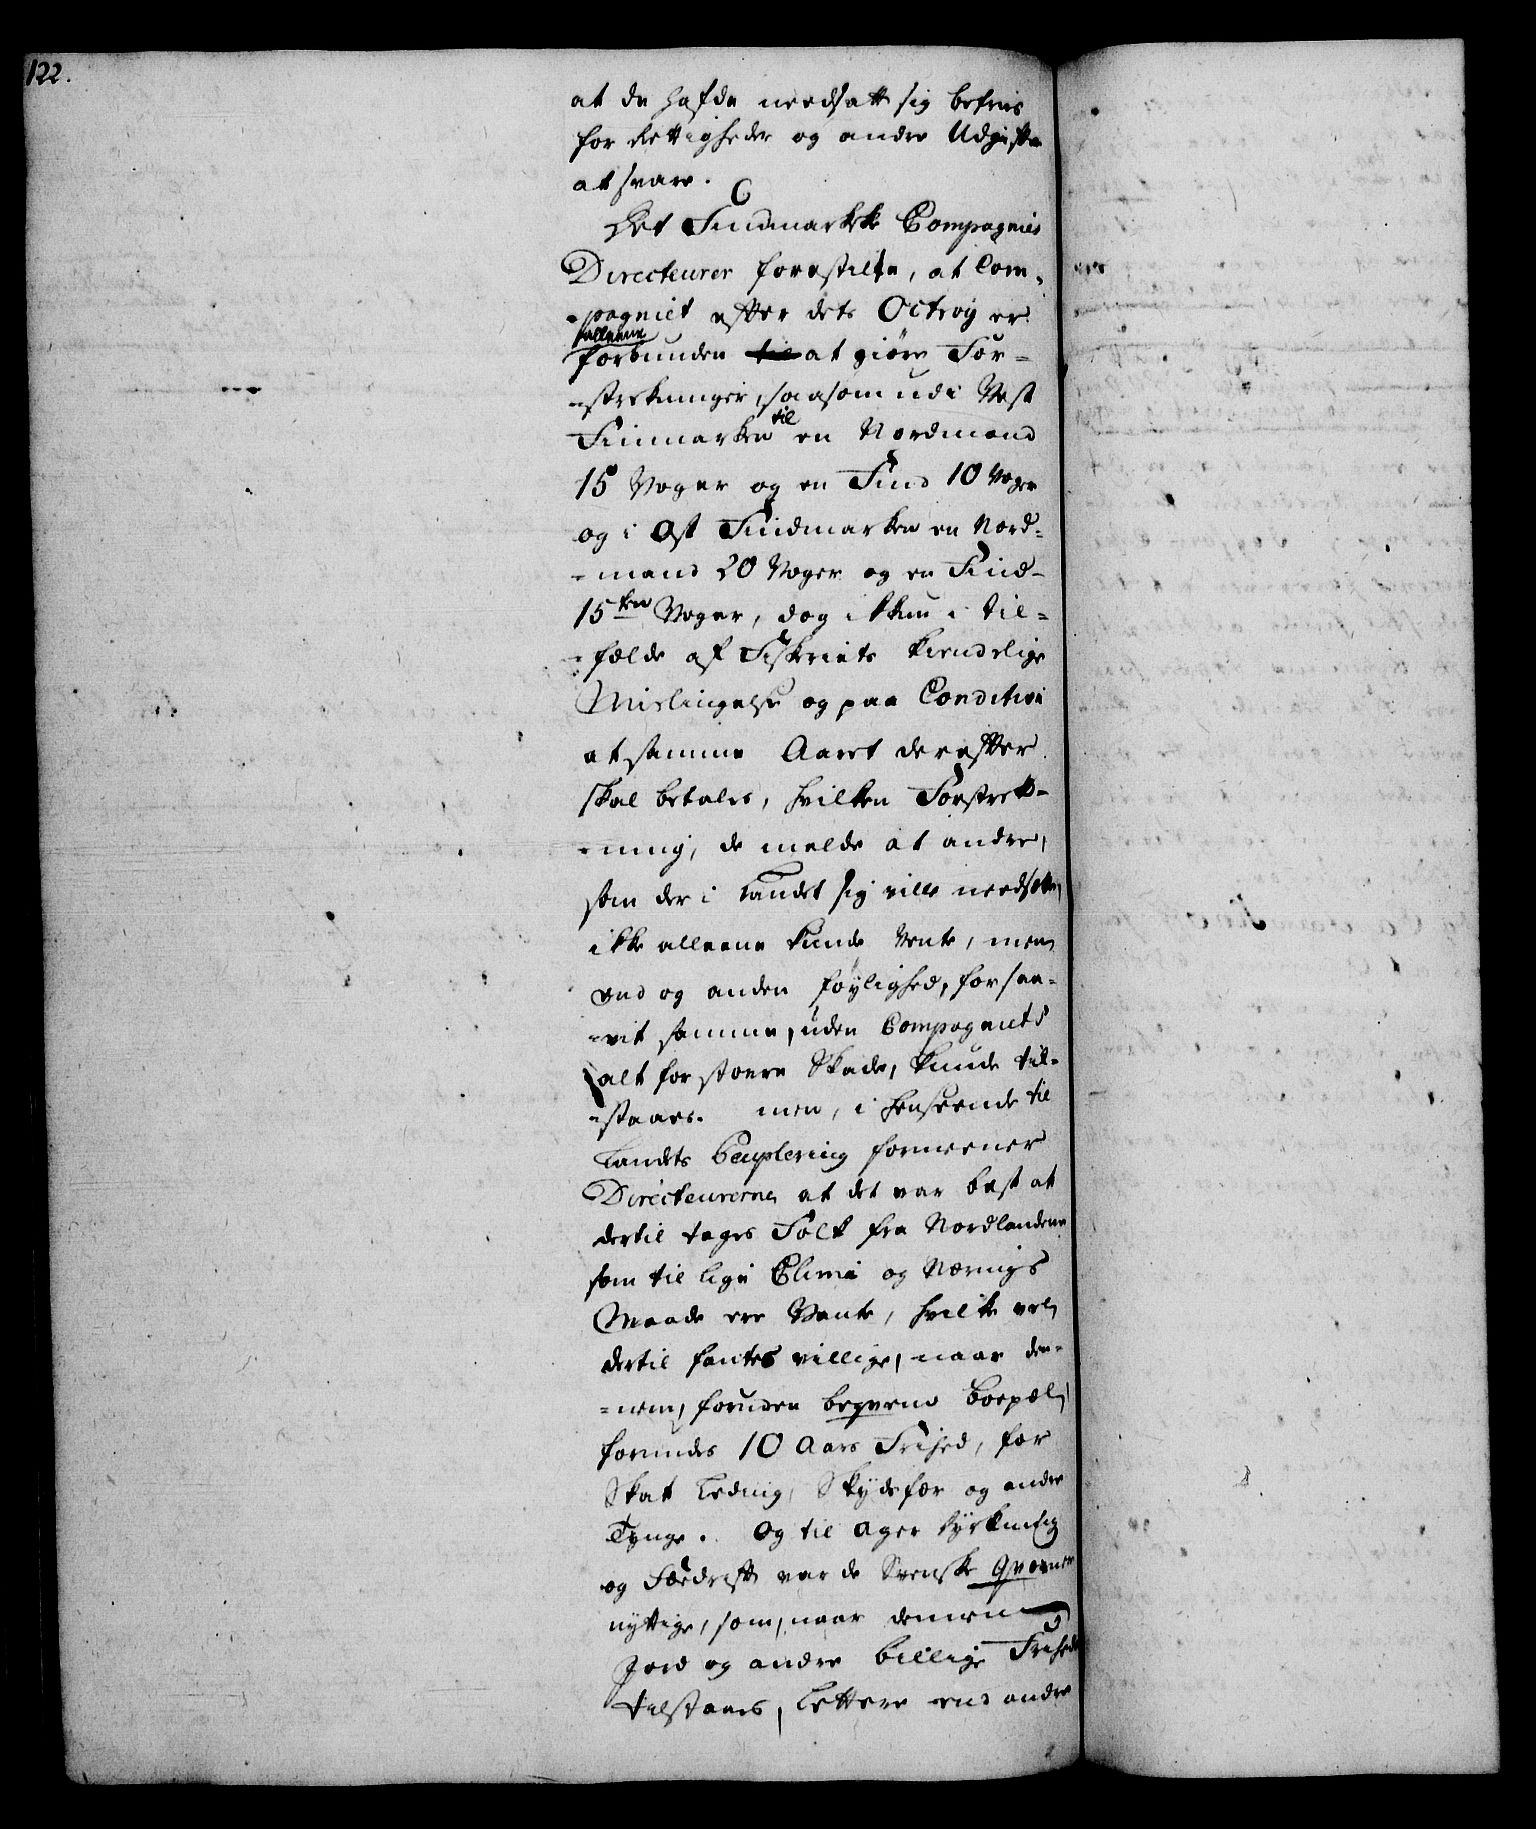 122.
at de hafde needsatt sig befries
for Rettigheder og andre Udgifter
at svare.
Det Findmarkske Compagnies
Directeurer forestilte, at Com-
-pagniet efter dets Octroy er
alleene
forbunden til at giøre For-
-strekninger, saasom udi Vest
Finmarken til en Nordmand
15 Voger og en Find 10 Voger
og i Øst Findmarken en Nord-
-mand 20 Voger og en Find
15ten Voger, dog ikkun i til-
-fælde af Fiskeriets kiendelige
Mislingelse og paa Condition
at samme Aaret derefter
skal betales, hvilken Forstrek-
-ning, de melde at andre,
som der i Landet sig ville needsette,
ikke alleene kunde vente, men
end og anden føylighed, forsaa-
-vit samme, uden Compagniets
alt for stoere Skade, kunde til-
-staaes. men, i henseende til
Landets Peuplering formeener
Directeurerne at det var best at
dertil tages Folk fra Nordlandene
som til lige Clima og Nærings
Maade ere Vante, hvilke vel
dertil fantes villige, naar den-
-nem, foruden beqvem Boepæl,
forundes 10 Aars Frihed, for
Skat Leding, Skydsfær og andre
Tynge. Og til Ager dyrkning
og Fædrift var de Svenske Qvæner
nyttige, som, naar dennem
Jord og andre billige Friheder
tilstaaes, lettere end andre